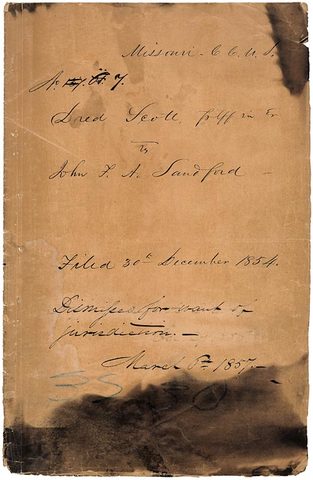 Missouri C. C. U. S.
No. 7.
Dred Scott Pltff in Er
vs
John F. A. Sandford
Filed 30th December 1854.
Dismissed for want of
jurisdiction.—
March 6th 1857.—